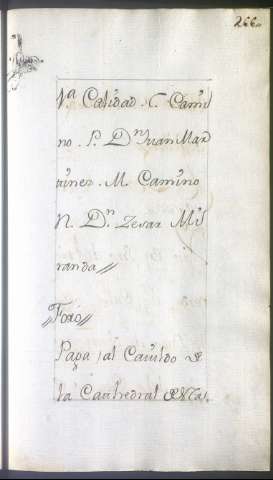 266.
1.ª Calidad. C. Cami
no. P. Dⁿ Juan Mar
tinez. M. Camino
N. Dⁿ. Zesar Mi
randa//
Foro//
Paga al Cavildo de
la Cathedral